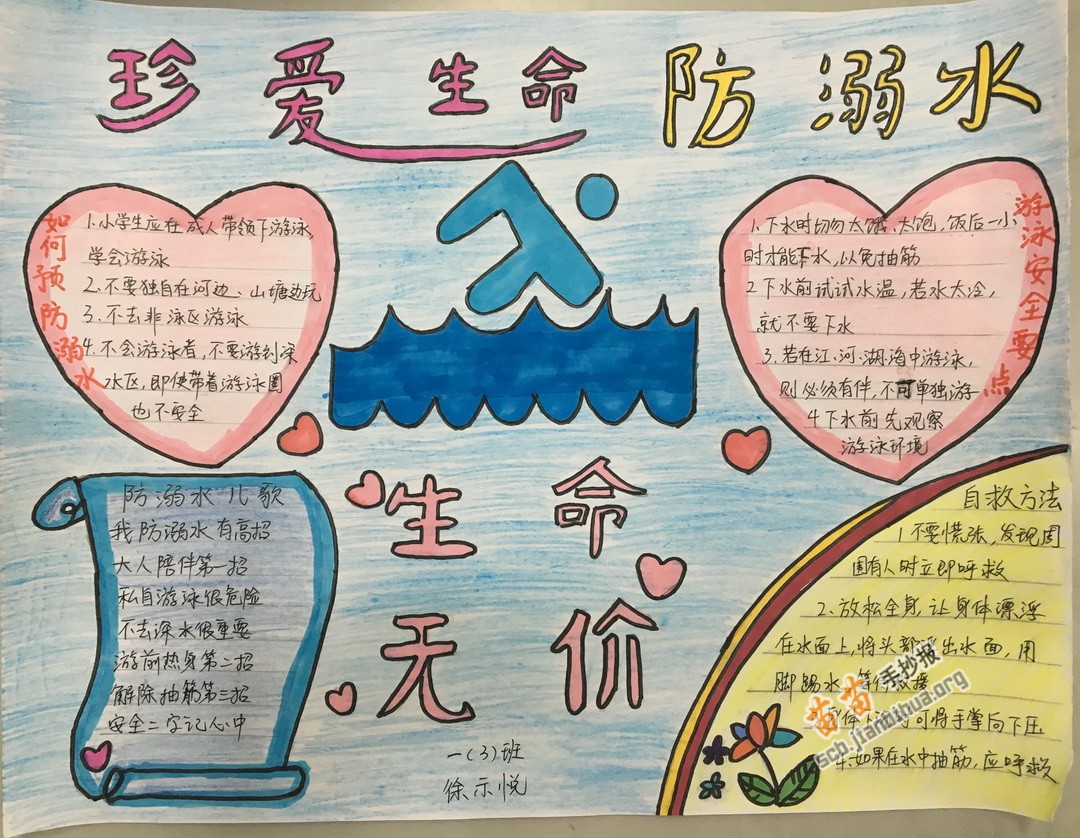 珍爱生命防溺水
如何预防溺水
1.小学生应在成人带领下游泳,
学会游泳
2.不要独自在河边、山塘边玩
3.不去非泳区游泳
4.不会游泳者,不要游到深
水区,即使带着游泳圈
也不安全
游泳安全要点
1.下水时切勿太饿、太饱,饭后一小
时才能下水,以免抽筋
2下水前试试水温,若水太冷,
就不要下水
3.若在江·河·湖·海中游泳,
则必须有伴,不可单独游
4下水前先观察
游泳环境
防溺水儿歌
我防溺水有高招
大人陪伴第一招
私自游泳很危险
不去深水很重要
游前热身第二招
解除抽筋第三招
安全二字记心中
生命
无价
一(3)班
徐示悦
自救方法
1不要慌张,发现周
围有人时立即呼救
2、放松全身,让身体漂浮
在水面上,将头部浮出水面,用
脚踢水
身体 可将手掌向下压
4.如果在水中抽筋,应呼救
苗苗手抄报
scb.jianbihua.org